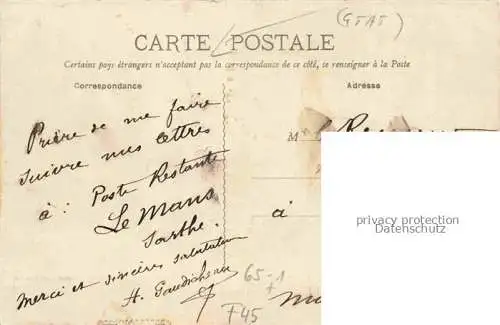 (GTAT)
CARTE POSTALE
Certains pays étrangers n'acceptant pas la correspondance de ce côté, se renseigner à la Poste
Correspondance
Adresse
Prière de me faire
suivre mes lettres
à : Poste Restante
Le Mans
Sarthe.
Merci et sincères salutations
H. Gaudicheau
M
à
privacy protection
Datenschutz
65-1
+
F45